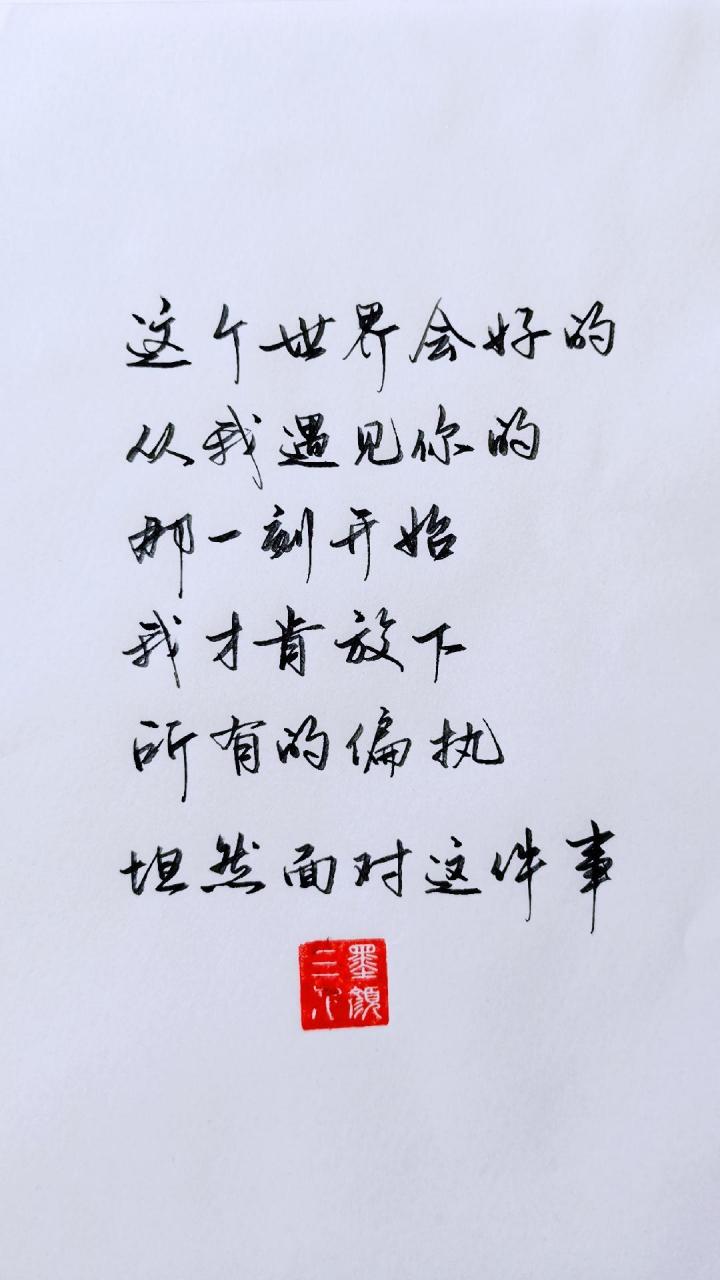 这个世界会好的
从我遇见你的
那一刻开始
我才肯放下
所有的偏执
坦然面对这件事
墨颜